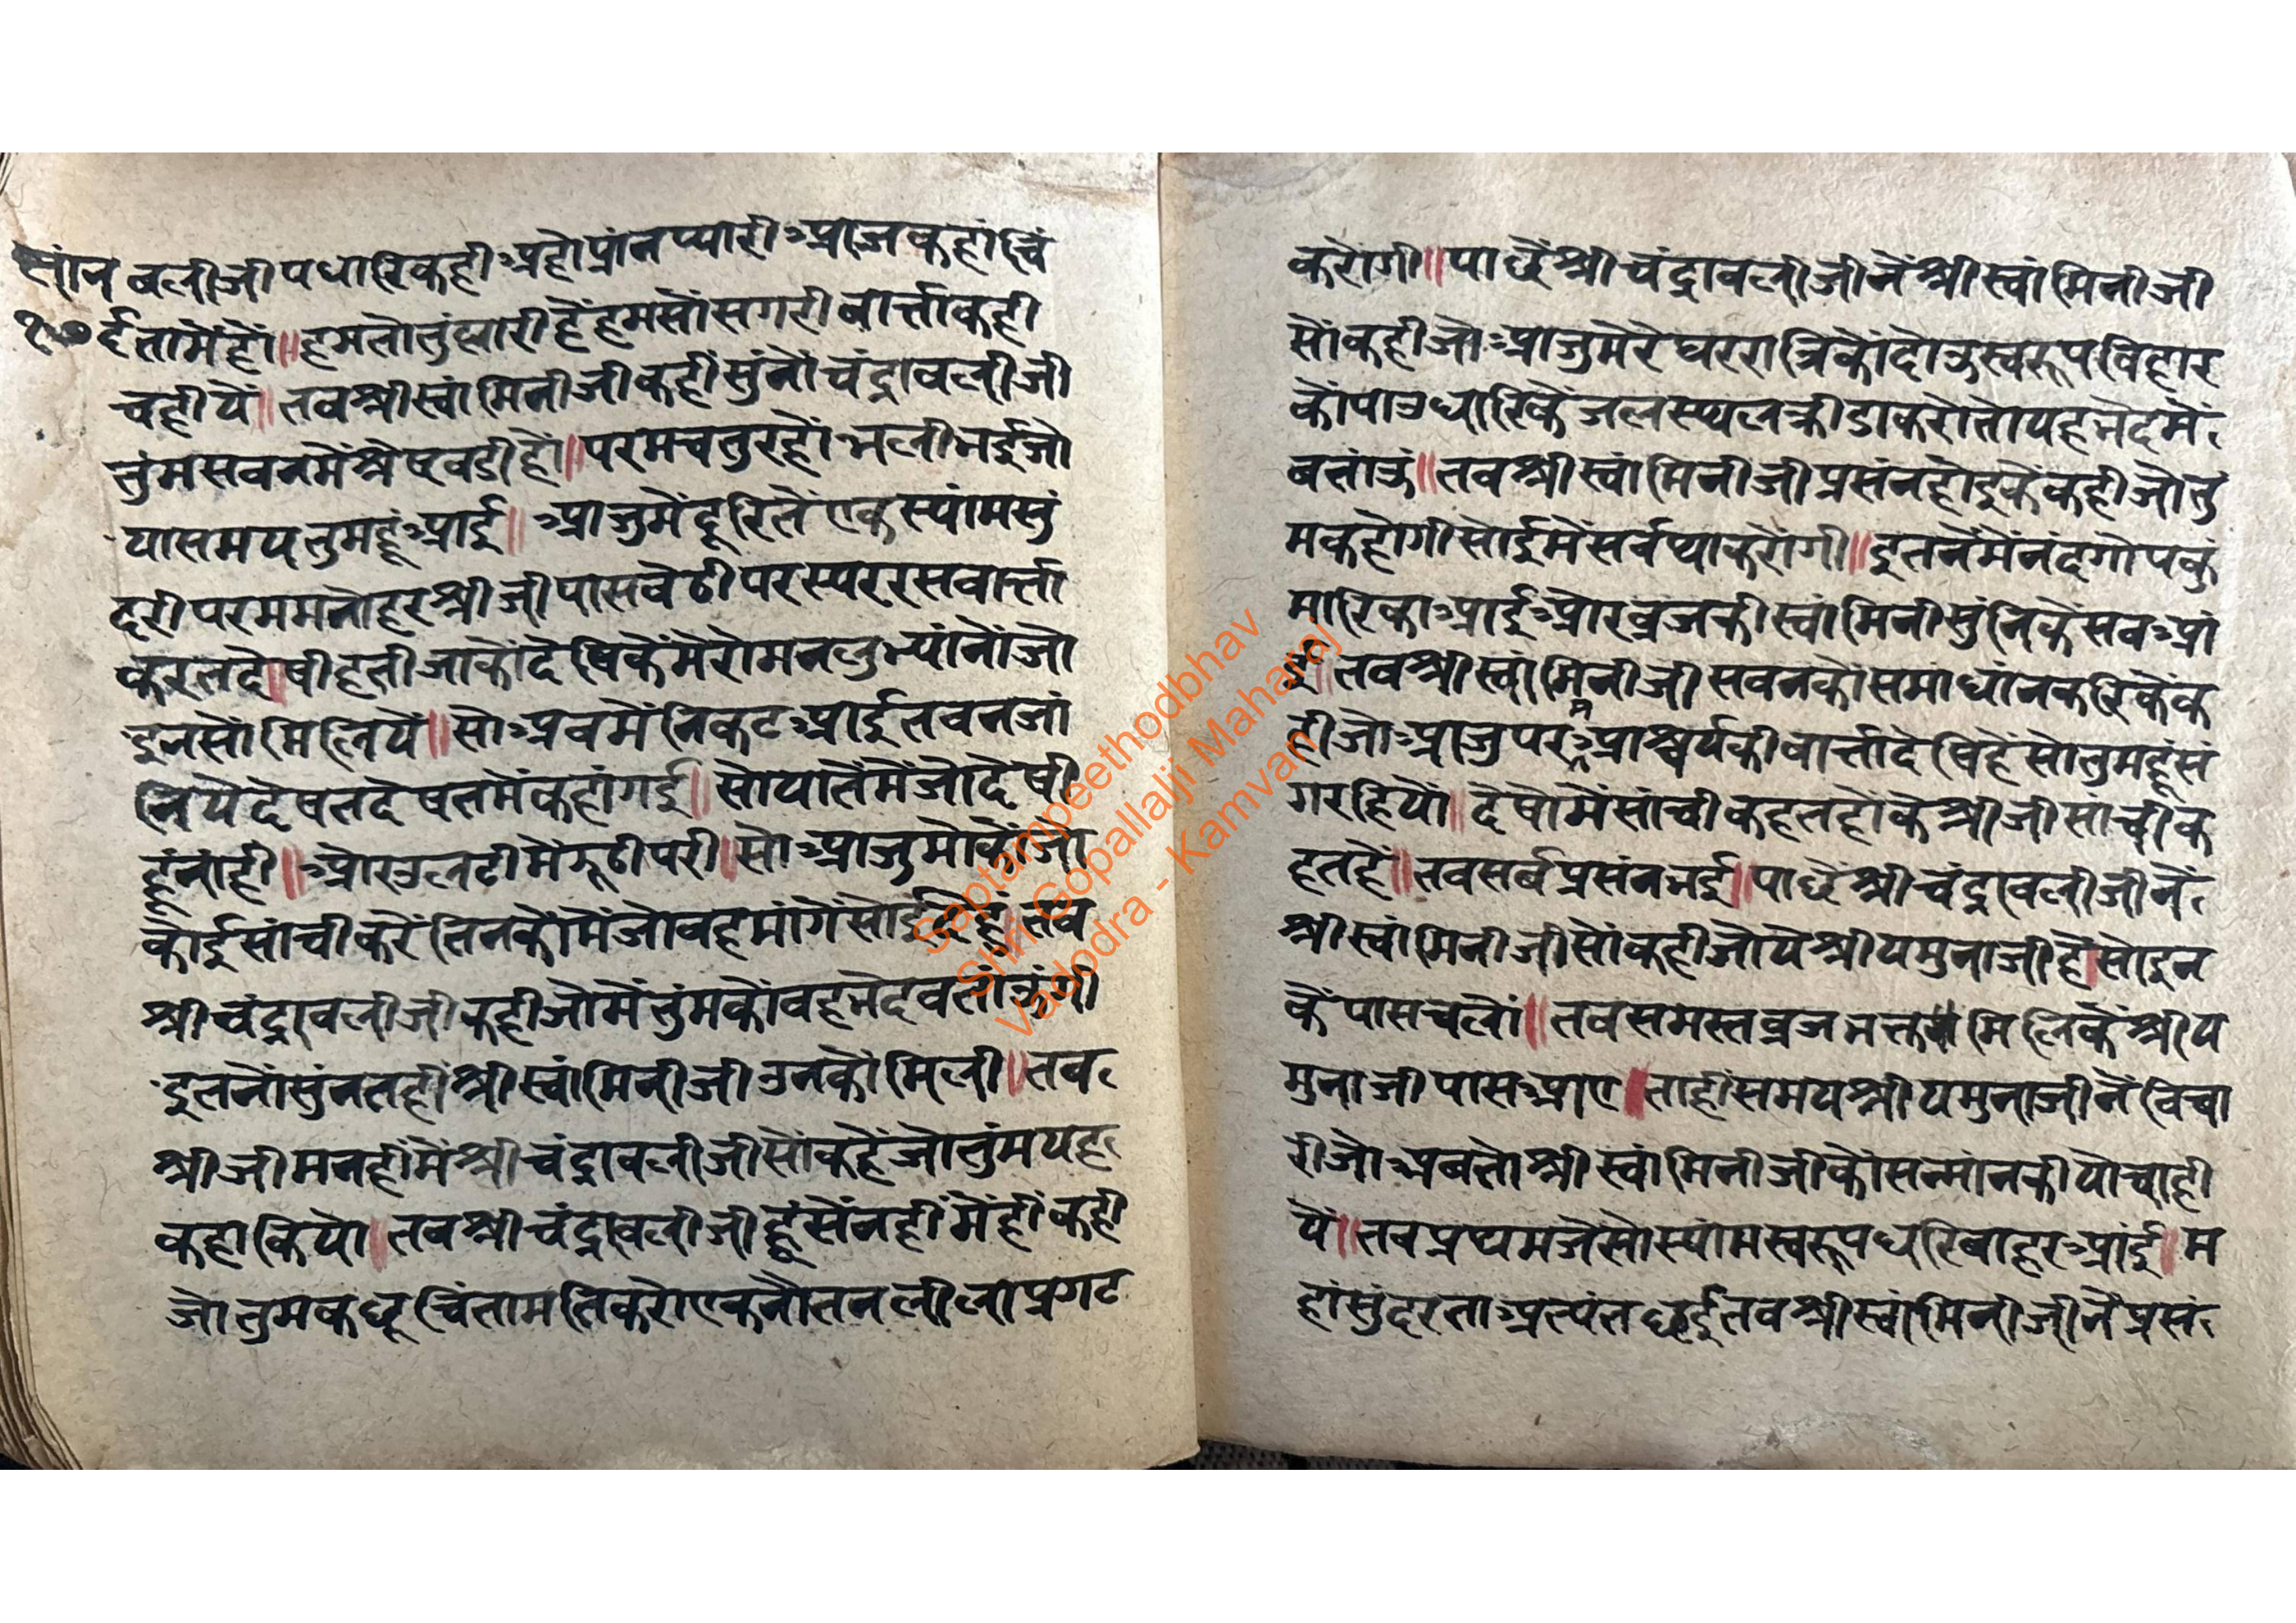 सांन
१७०
वलीजीपधारिकही अहोप्रांनप्यारी आजकहांचिं
र्ईतामेंहों॥हमतोतुंह्मारीहेंहमसोंसगरीवार्त्ताकही
चहीयें॥तवश्रीस्वांमिनीजीकहींसुंनोंचंद्रावलीजी
तुंमसवनमेंश्रेषवडीहों॥परमचतुरहों भलीभईजो
यासमयतुमहूं आई॥ आजुमेंदूरितेंएकस्यांमसुं
दरीपरममनोहरश्रीजीपासवेठीपरस्पररसवार्त्ता
करतदेषीहतीजाकोंदेषिकेंमेरोमनलुभ्यांनोंजो
इनसोंमिलियें॥सो अवमेंनिकट आईतवनजां
नियेदेषतदेषतमेंकहांगई॥सोयातेंमेंजोदेषी
हूंनांही॥ ओरउलटीमेंझूठीपरी॥सो आजुमोकोंजो
कोईसांचीकरेंतिनकोंमेंजोवहमांगेंसोईदेहूं॥तव
श्रीचंद्रावलीजीकहीजोमेंतुंमकोंवहभेदवतांऊंगी
इतनोंसुंनतहींश्रीस्वांमिनीजीउनकोंमिली॥तव
श्रीजीमनहींमेंश्रीचंद्रावलीजीसोंकहेंजोतुंमयह
कहाकियो॥तवश्रीचंद्रावलीजीहूसेंनहींमेंहींकही
जोतुमकछूचिंतामतिकरोएकनौतनलीलाप्रगट
करोंगी॥पाछेंश्रीचंद्रावलीजीनेंश्रीस्वांमिनीजी
सोंकहीजो आजुमेरेघररात्रिकोंदोऊस्वरूपविहार
कोंपाउधारिकेंजलस्थलक्रीडाकरोतोयहभेदमें
वतांऊं॥तवश्रीस्वांमिनीजीप्रसंनहोइकेंकहीजोतु
मकहोगीसोईमेंसर्वथाकरोंगी॥इतनेंमेंनंदगोपकुं
मारिका आई ओरव्रजकीस्वांमिनीसुंनिकेसव आं
ई॥तवश्रीस्वांमिनीजीसवनकोंसमांधांनकरिकेंक
हीजो आजुपरम आश्चर्यकीवार्त्तादेषिहेंसोतुमहूंसं
गरहियों॥देषोमेंसांचीकहतहोंकेश्रीजीसांचीक
हतहें॥तवसर्वप्रसंनभई॥पाछेंश्रीचंद्रावलीजीनें
श्रीस्वांमिनीजीसोंकहीजोयेश्रीयमुनाजीहें॥सोइन
केंपासचलों॥तवसमस्तव्रजभक्तमिलिकेंश्रीय
मुनाजीपास आए॥ताहींसमयश्रीयमुनाजीनेंविचा
रीजो अवतोश्रीस्वांमिनीजीकोंसन्मांनकीयोचाही
यें॥तवप्रथमजेसोस्यांमस्वरूपधरिवाहर आंई॥म
हांसुंदरता अत्यंतछईतवश्रीस्वांमिनीजीनेंप्रसं
Saptampeethodbhav
Shri Gopallalji Maharaj
Vadodra - Kamvan